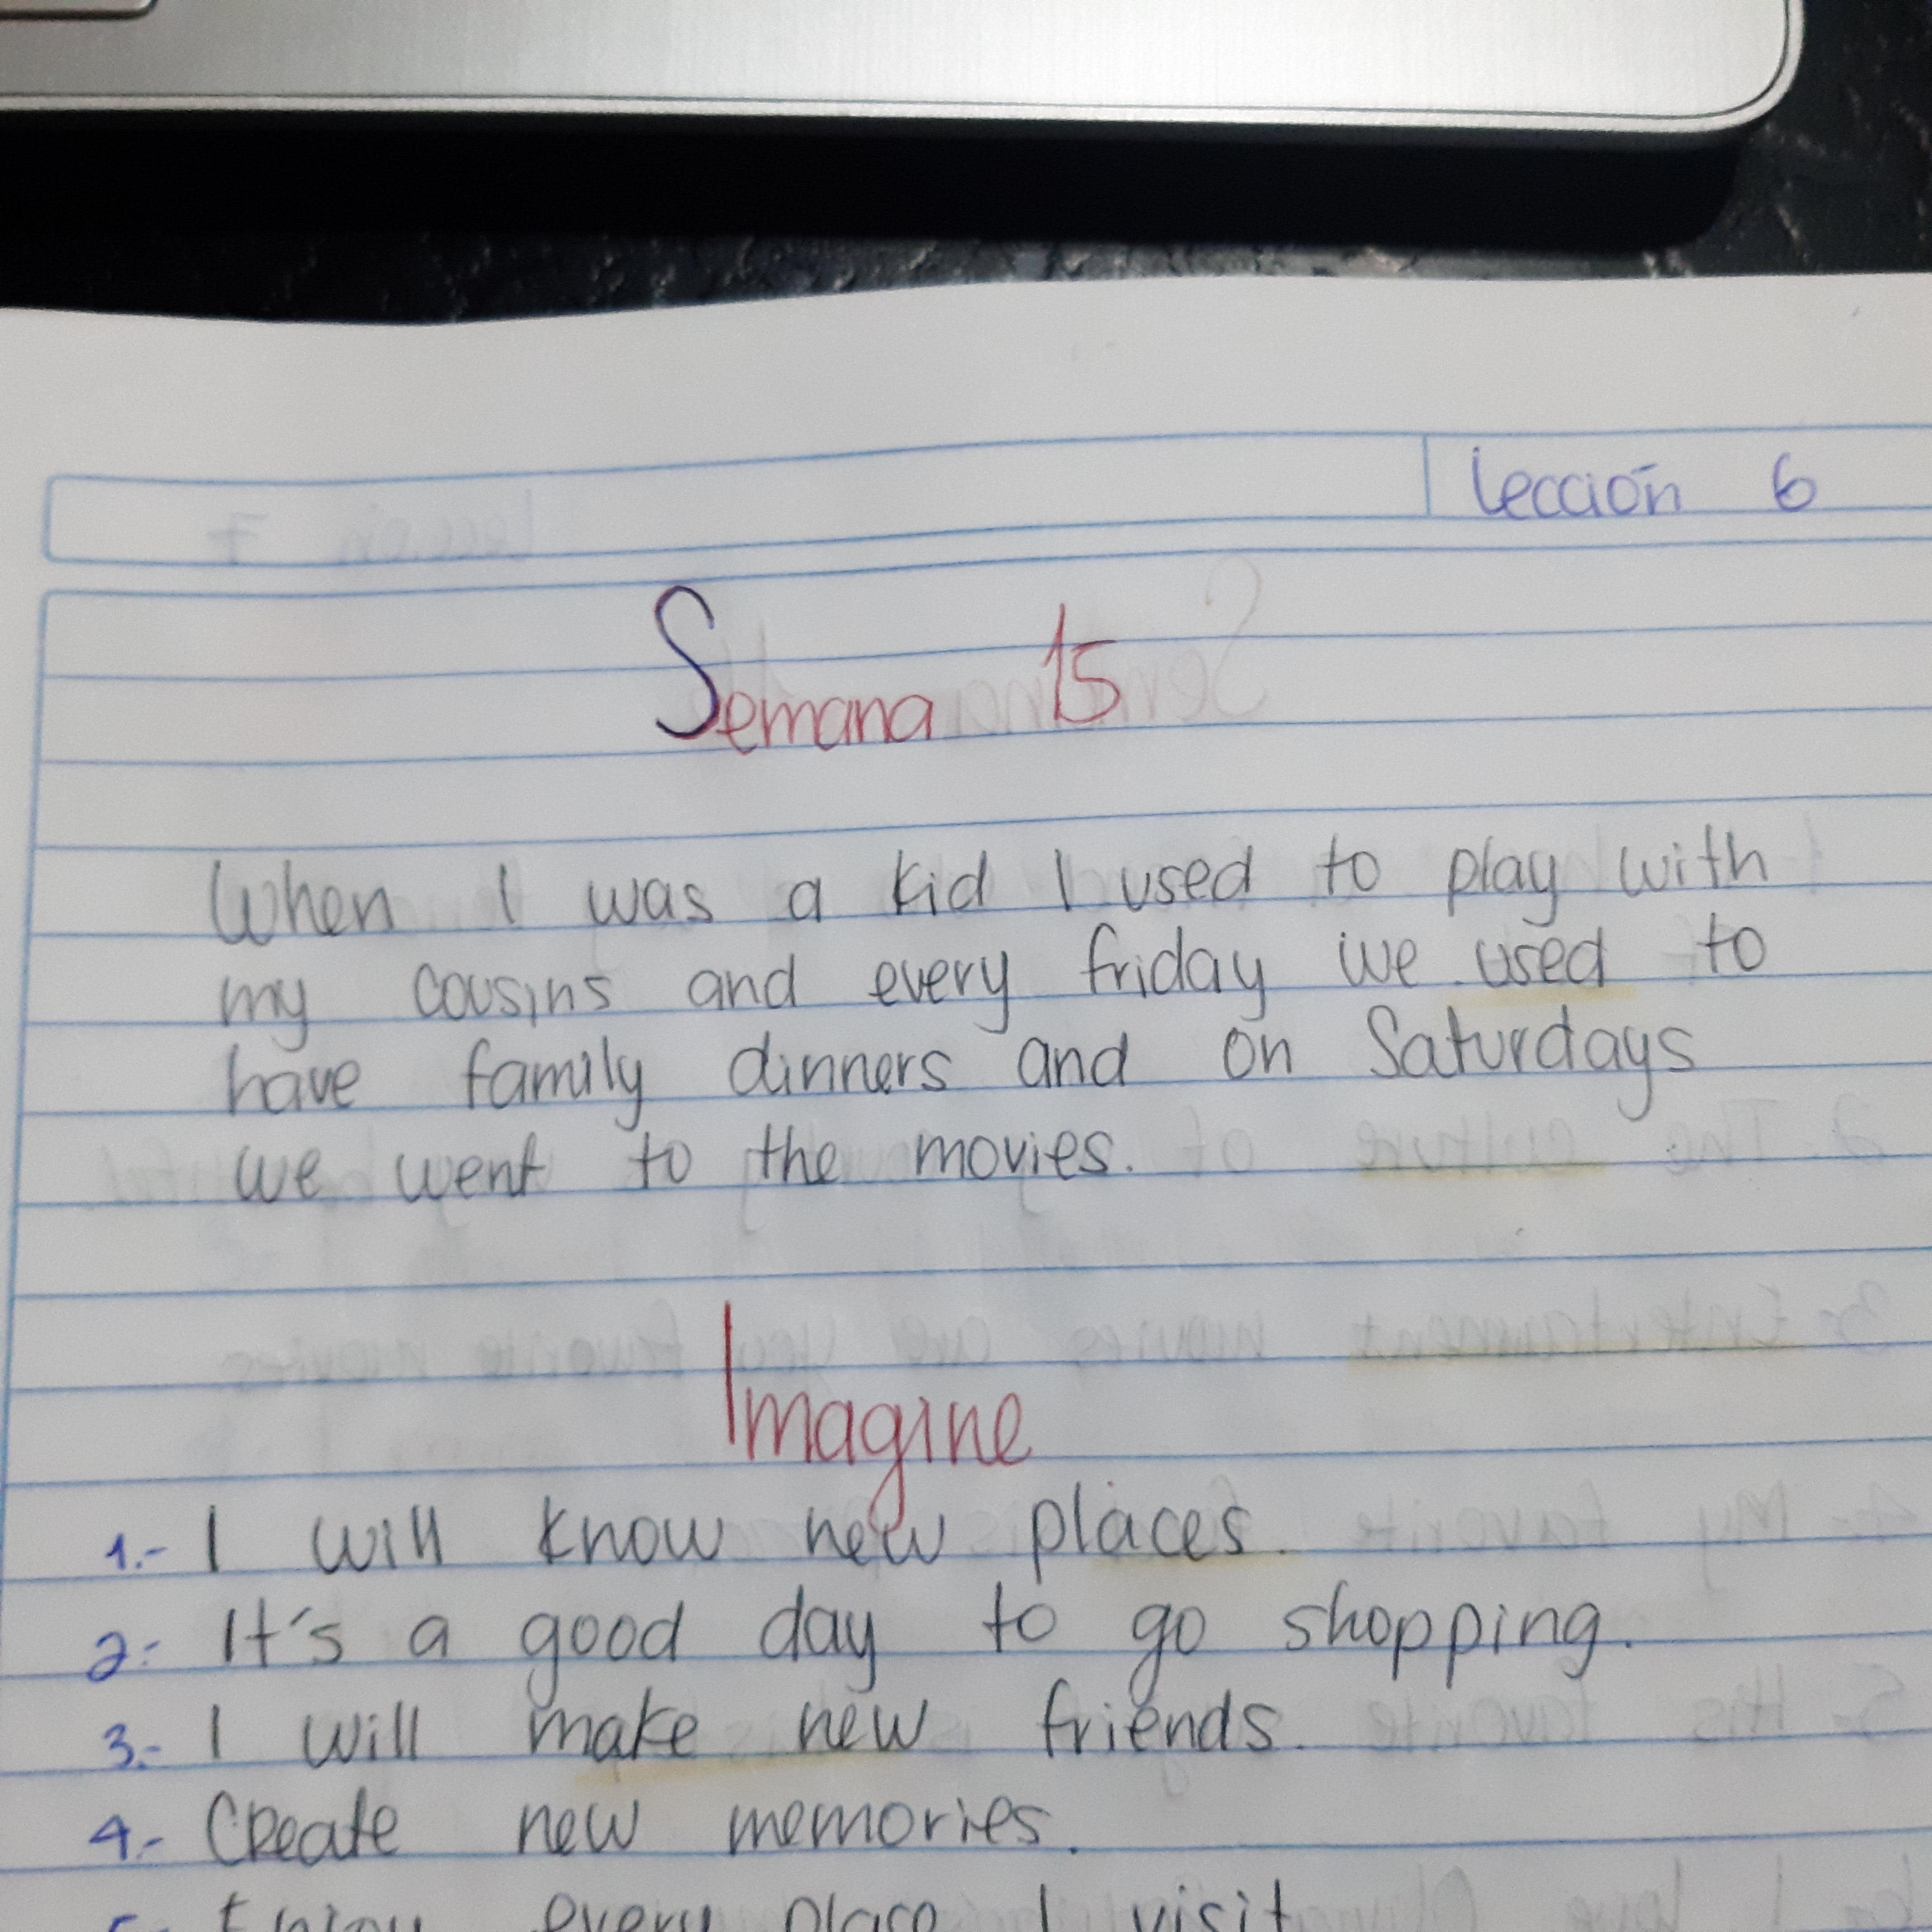 Lección 6
Semana 15
When I was a kid I used to play with
my cousins and every friday we used to
have family dinners and on Saturdays
we went to the movies.
Imagine
1.- I will know new places.
2.- It's a good day to go shopping.
3.- I will make new friends.
4.- Create new memories.
5.- Enjoy every place I visit